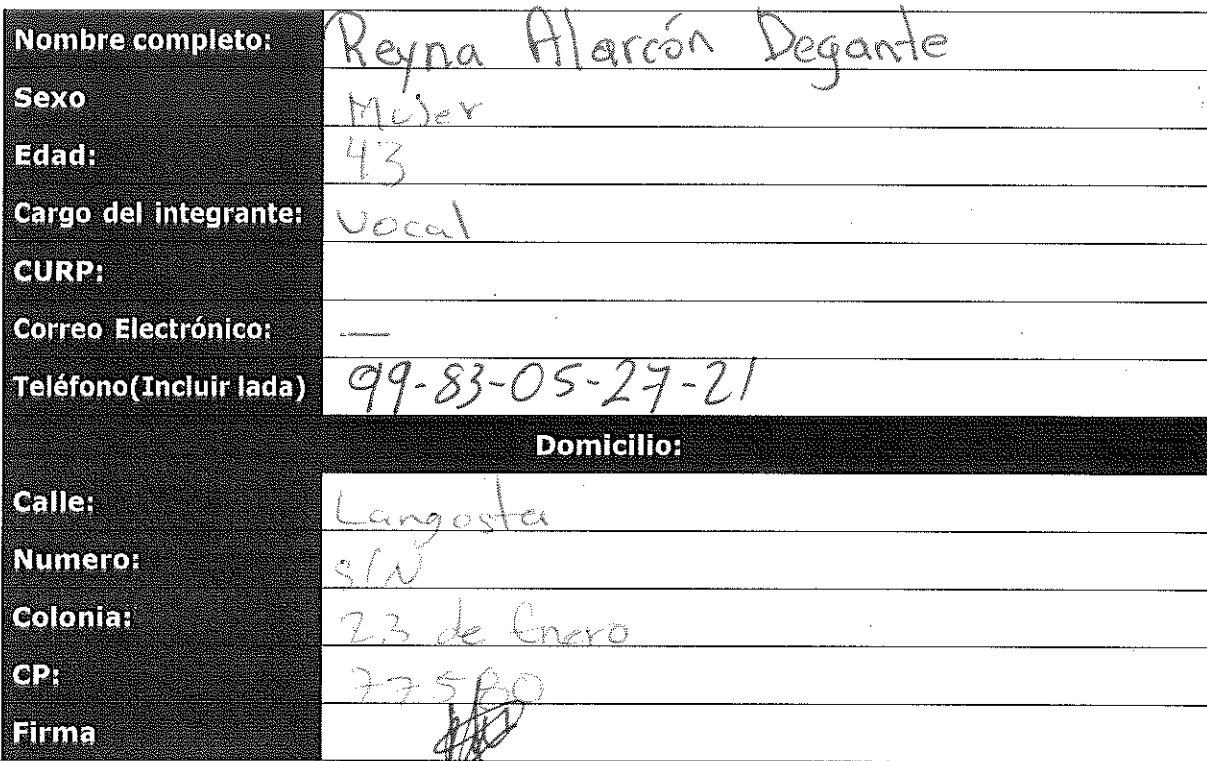 Nombre completo: Reyna Alarcón Degante
Sexo Mujer
Edad: 43
Cargo del integrante: Vocal
CURP:
Correo Electrónico: —
Teléfono(Incluir lada) 99-83-05-27-21
Domicilio:
Calle: Langosta
Numero: S/N
Colonia: 23 de Enero
CP: 77580
Firma